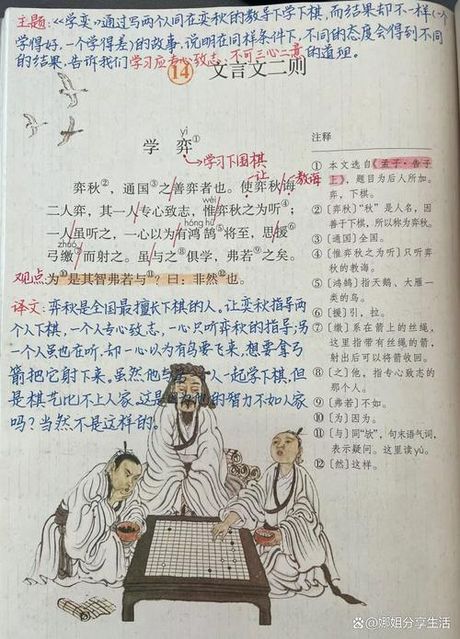 主题:《学奕》通过写两个人同在奕秋的教导下学下棋,而结果却不一样(一个
学得好,一个学得差)的故事,说明在同样条件下,不同的态度会得到不同
的结果,告诉我们学习应专心致志,不可三心二意的道理。
14 文言文二则
yì
学 弈①
→学习下围棋
让 教诲
弈秋②,通国③之善弈者也。使弈秋诲
wéi
二人弈,其一人专心致志,惟弈秋之为听④;
hóng hú
一人虽听之,一心以为有鸿鹄⑤将至,思援⑥
zhuó
弓缴⑦而射之。虽与之⑧俱学,弗若⑨之矣。
观点 为⑩是其智弗若与⑪?曰:非然⑫也。
译文:弈秋是全国最擅长下棋的人。让弈秋指导两
个人下棋,一个人专心致志,一心只听弈秋的指导;另
一个人虽也在听,却一心以为有鸟要飞来,想要拿弓
箭把它射下来。虽然他与 人一起学下棋,但
是棋艺比不上人家。这是 他的智力不如人家
吗?当然不是这样的。
注释
① 本文选自《孟子·告子
上》,题目为后人所加。
弈,下棋。
② [弈秋]“秋”是人名,因
善于下棋,所以称为弈秋。
③ [通国]全国。
④ [惟弈秋之为听]只听弈
秋的教诲。
⑤ [鸿鹄]指天鹅、大雁一
类的鸟。
⑥ [援]引,拉。
⑦ [缴]系在箭上的丝绳,
这里指带有丝绳的箭,
射出后可以将箭收回。
⑧ [之]他,指专心致志的
那个人。
⑨ [弗若]不如。
⑩ [为]因为。
⑪ [与]同“欤”,句末语气词,
表示疑问。这里读yú。
⑫ [然]这样。
头条 @娜姐分享生活